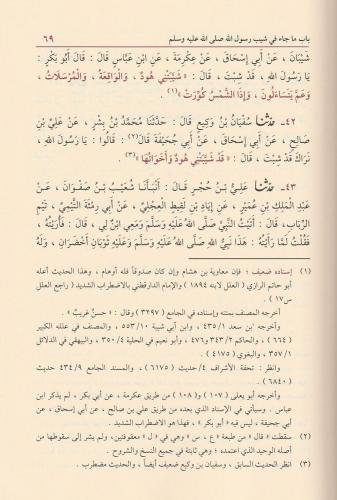 باب ما جاء في شيب رسول الله صلى الله عليه وسلم ٦٩
شَيْبَانَ ، عَنْ أَبِي إِسْحَاقَ ، عَنْ عِكْرِمَةَ ، عَنِ ابْنِ عَبَّاسٍ قَالَ : قَالَ أَبُو بَكْرٍ :
يَا رَسُولَ اللهِ ، قَدْ شِبْتَ ، قَالَ : « شَيَّبَتْنِي هُودٌ ، وَالْوَاقِعَةُ ، وَالْمُرْسَلَاتُ ،
وَعَمَّ يَتَسَاءَلُونَ ، وَإِذَا الشَّمْسُ كُوِّرَتْ »(١) .
٤٢ـ حدثنا سُفْيَانُ بْنُ وَكِيعٍ قَالَ : حَدَّثَنَا مُحَمَّدُ بْنُ بِشْرٍ ، عَنْ عَلِيِّ بْنِ
صَالِحٍ ، عَنْ أَبِي إِسْحَاقَ ، عَنْ أَبِي جُحَيْفَةَ قَالَ(٢) : قَالُوا : يَا رَسُولَ اللهِ ،
نَرَاكَ قَدْ شِبْتَ ، قَالَ : « قَدْ شَيَّبَتْنِي هُودٌ وَأَخَوَاتُهَا »(٣) .
٤٣ـ حدثنا عَلِيُّ بْنُ حُجْرٍ قَالَ : أَنْبَأَنَا شُعَيْبُ بْنُ صَفْوَانَ ، عَنْ
عَبْدِ الْمَلِكِ بْنِ عُمَيْرٍ ، عَنْ إِيَادِ بْنِ لَقِيطٍ الْعِجْلِيِّ ، عَنْ أَبِي رِمْثَةَ التَّيْمِيِّ ، تَيْمِ
الرِّبَابِ ، قَالَ : أَتَيْتُ النَّبِيَّ صَلَّى اللهُ عَلَيْهِ وَسَلَّمَ وَمَعِيَ ابْنٌ لِي ، قَالَ : فَأُرِيتُهُ ،
فَقُلْتُ لَمَّا رَأَيْتُهُ : هَذَا نَبِيُّ اللهِ صَلَّى اللهُ عَلَيْهِ وَسَلَّمَ وَعَلَيْهِ ثَوْبَانِ أَخْضَرَانِ ، وَلَهُ
(١) إسناده ضعيف ؛ فإن معاوية بن هشام وإن كان صدوقاً فله أوهام ، وهذا الحديث أعله
أبو حاتم الرازي ( العلل لابنه ١٨٩٤ ) والإمام الدارقطني بالاضطراب الشديد ( راجع العلل
س١٧ ) .
أخرجه المصنف بمتنه وإسناده في الجامع ( ٣٢٩٧ ) وقال : « حسنٌ غريبٌ » .
وأخرجه ابن سعد ٤٣٥/١ ، وابن أبي شيبة ٥٥٣/١٠ ، والمصنف في علله الكبير
( ٦٦٤ ) ، والحاكم ٣٤٣/٢ و٤٧٦ ، وأبو نعيم في الحلية ٣٥٠/٤ ، والبيهقي في الدلائل
٣٥٧/١ ، والبغوي ( ٤١٧٥ ) .
وانظر : تحفة الأشراف ٤/حديث ( ٦١٧٥ ) ، والمسند الجامع ٤٣٤/٩ حديث
( ٦٨٤٠ ) .
وأخرجه أبو يعلى ( ١٠٧ ) و( ١٠٨ ) من طريق عكرمة ، عن أبي بكر ، لم يذكر ابن
عباس . وسيأتي في الإسناد الذي بعده من طريق علي بن صالح ، عن أبي إسحاق ، عن
أبي جحيفة ، ليس فيه « أبو بكر » ، فهذا هو الاضطراب الشديد .
(٢) سقطت « قال » من طبعة « ع ، س » وهي في « ل » معقوفتين، ولم يشر إلى سقوطها من
أصله الوحيد الذي اعتمده ؛ وهي ثابتة في جميع النسخ والشروح .
(٣) انظر الحديث السابق ، وسفيان بن وكيع ضعيف أيضاً ، والحديث مضطرب .